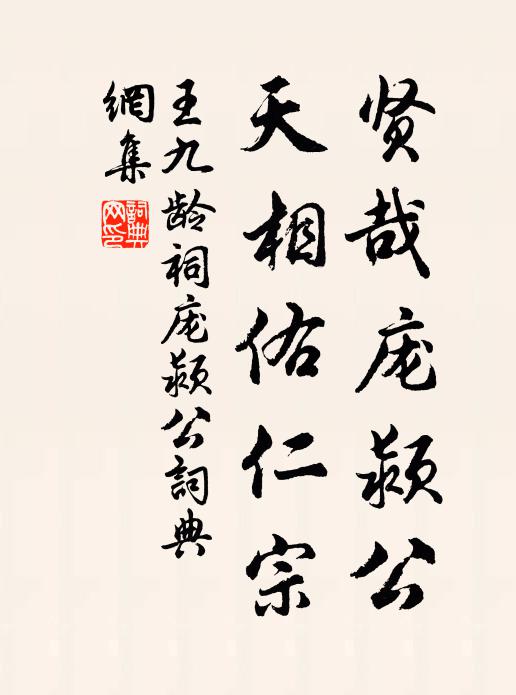 贤哉庞颍公
天相佑仁宗
王九龄祠庞颍公詞典
網集
詞典
网印